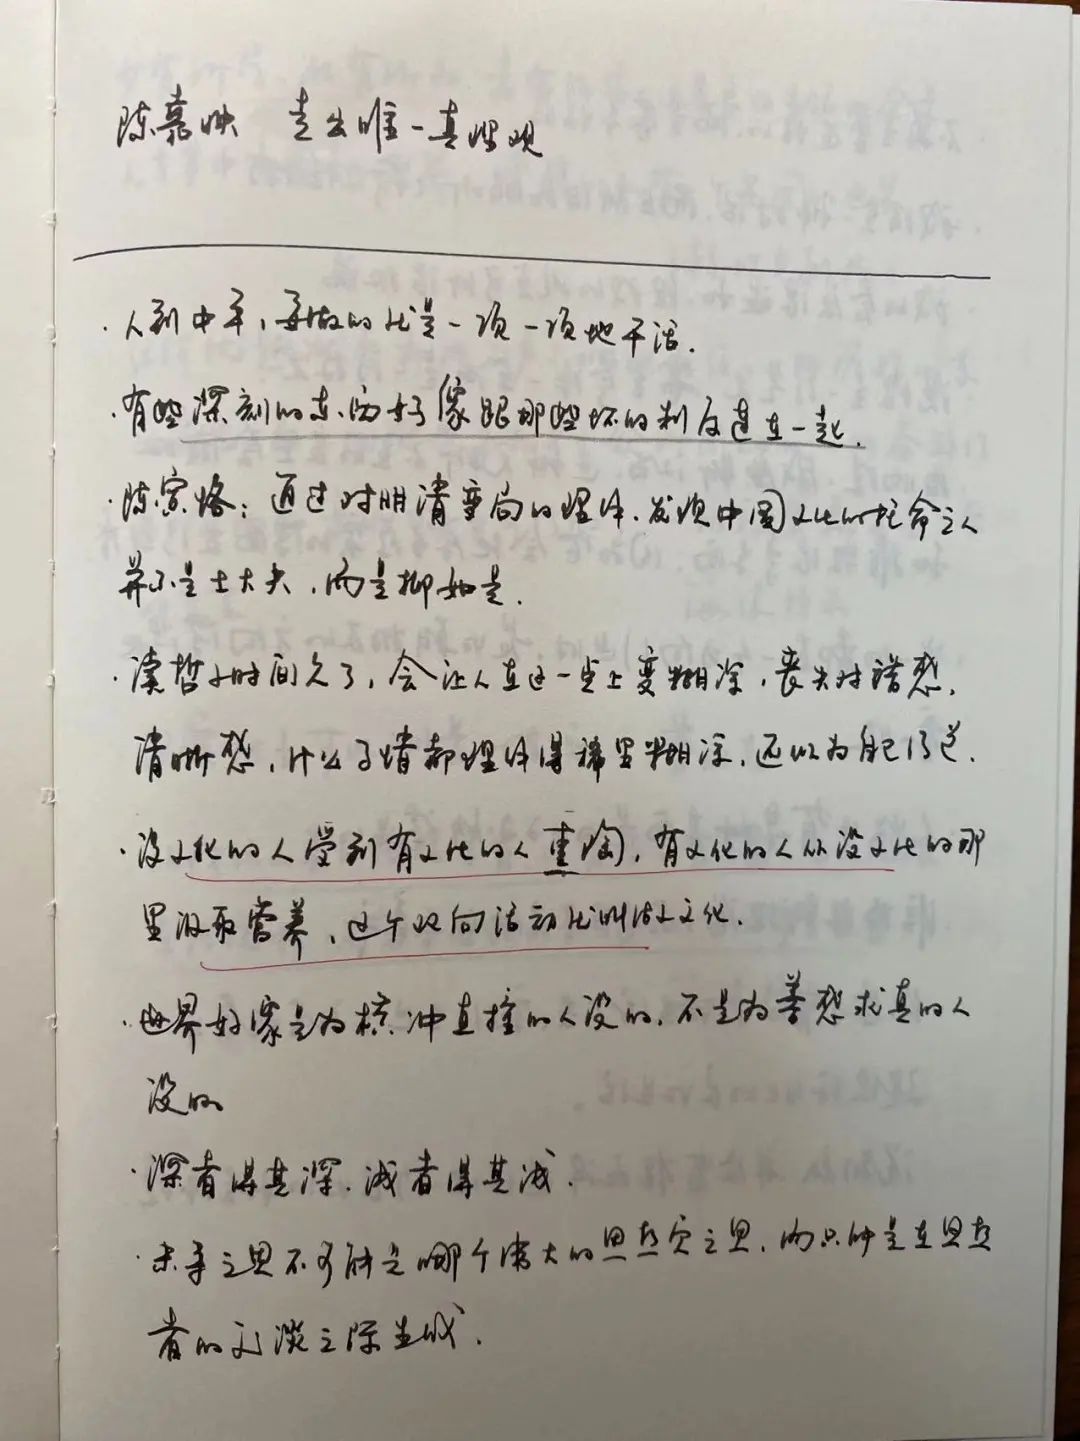 陈嘉映 走出唯一真理观
·人到中年，要做的就是一项一项地干活.
·有些深刻的东西好像跟那些坏的制度连在一起.
·陈寅恪：通过对明清变局的理解，发现中国文化的托命之人
并不是士大夫，而是柳如是.
·读哲学时间久了，会让人在这一点上变糊涂，丧失对错感，
清晰感，什么事情都理解得稀里糊涂，还以为自己得道.
·没文化的人受到有文化的人熏陶，有文化的人从没文化的那
里汲取营养，这个双向活动就叫做文化.
·世界好像是为横冲直撞的人设的，不是为善感求真的人
设的
·深者得其深，浅者得其浅.
·未来之思不可能是哪个伟大的思想家之思，而只能是在思想
者的交谈之际生成.